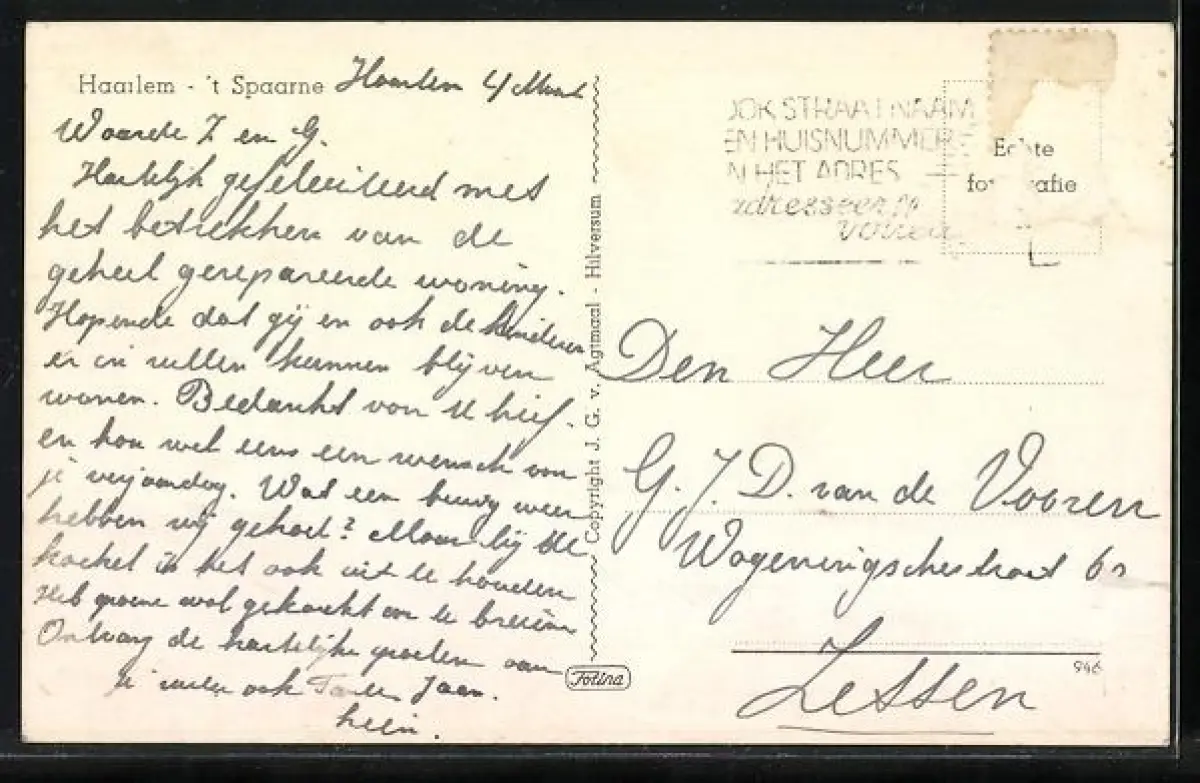 Haarlem - 't Spaarne
Haarlem 4 Maart
Waarde Z en G.
Hartelijk gefeliciteerd met
het betrekken van de
geheel gerepareerde woning.
Hopende dat gij en ook de kinderen
er in zullen kunnen blijven
wonen. Bedankt voor U brief.
en hou wel eens een wensch van
je verjaardag. Wat een weer
hebben wij gehad? Maar bij de
kachel is het ook uit te houden
Heb groene wol gekocht om te breien
Ontvang de hartelijke groeten van
ook Tante Jaan.
hein.
Copyright J. G. v. Agtmaal - Hilversum
Fotina
OOK STRAATNAAM
EN HUISNUMMER
IN HET ADRES
adresseer
Echte
fotografie
Den Heer
G. J. D. van de Vooren
Wageningschestraat
Zetten
946